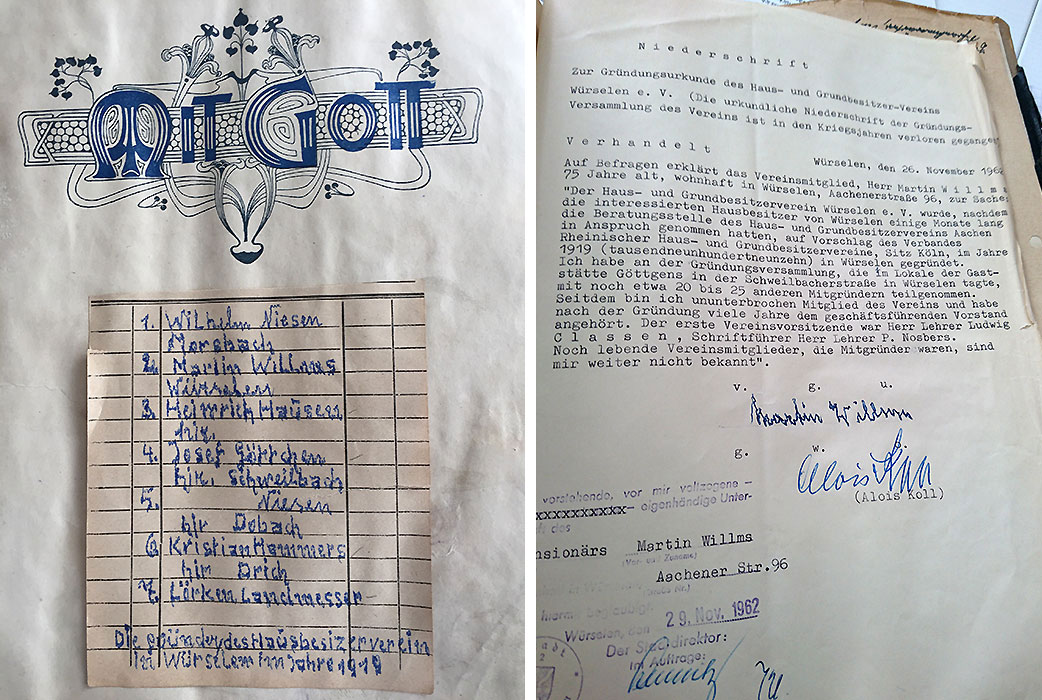 Mit Gott
1. Wilhelm Niesen
Morsbach
2. Martin Willms
Würselen
3. Heinrich Hausen
hir.
4. Josef Göttchen
hir. Schweilbach
5. Niesen
hir Dobach
6. Kristian Hammers
hir Drich
7. Lörken Landmesser
Die gründer des Hausbesizerverein
in Würselem im Jahre 1919
Niederschrift
Zur Gründungsurkunde des Haus- und Grundbesitzer-Vereins
Würselen e. V. (Die urkundliche Niederschrift der Gründungs-
Versammlung des Vereins ist in den Kriegsjahren verloren gegangen
Verhandelt
Würselen, den 26. November 1962
Auf Befragen erklärt das Vereinsmitglied, Herr Martin Willms
75 Jahre alt, wohnhaft in Würselen, Aachenerstraße 96, zur Sache:
"Der Haus- und Grundbesitzerverein Würselen e. V. wurde, nachdem
die interessierten Hausbesitzer von Würselen einige Monate lang
die Beratungsstelle des Haus- und Grundbesitzervereins Aachen
in Anspruch genommen hatten, auf Vorschlag des Verbandes
Rheinischer Haus- und Grundbesitzervereine, Sitz Köln, im Jahre
1919 (tausendneunhundertneunzehn) in Würselen gegründet.
Ich habe an der Gründungsversammlung, die im Lokale der Gast-
stätte Göttgens in der Schweilbacherstraße in Würselen tagte,
mit noch etwa 20 bis 25 anderen Mitgründern teilgenommen.
Seitdem bin ich ununterbrochen Mitglied des Vereins und habe
nach der Gründung viele Jahre dem geschäftsführenden Vorstand
angehört. Der erste Vereinsvorsitzende war Herr Lehrer Ludwig
Classen, Schriftführer Herr Lehrer P. Nosbers.
Noch lebende Vereinsmitglieder, die Mitgründer waren, sind
mir weiter nicht bekannt".
v. g. u.
Martin Willms
g. w.
Alois Koll
(Alois Koll)
vorstehende, vor mir vollzogene -
xxxxxxxxxxx- eigenhändige Unter-
des
nsionärs Martin Willms
(Vor- und Zuname)
Aachener Str.96
hiermit beglaubigt.
29. Nov. 1962
Würselen, den
Der Stadtdirektor:
Im Auftrage: